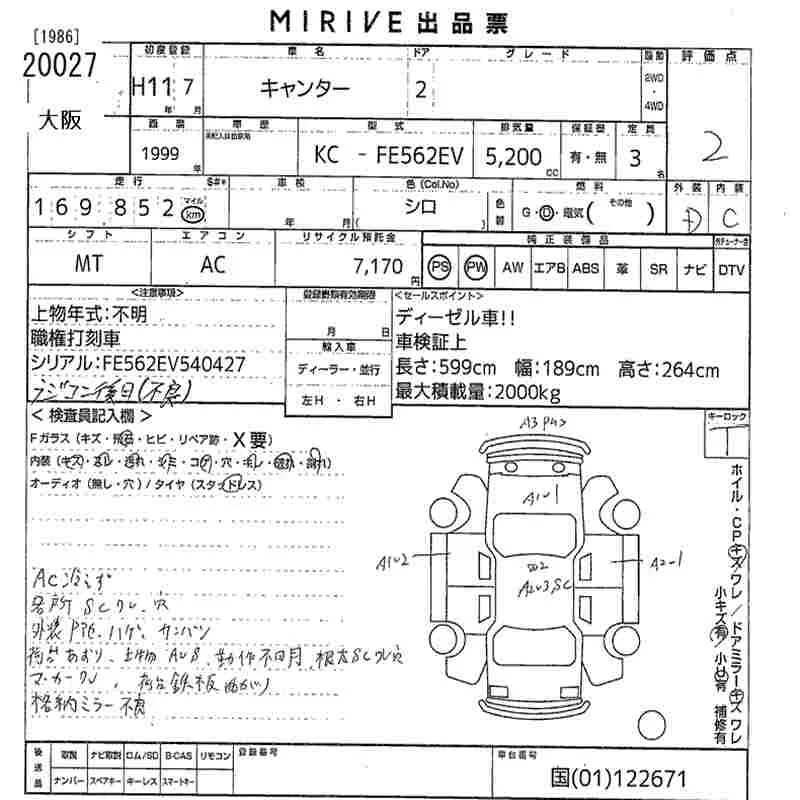 MIRIVE 出品票
[1986]
20027
大阪
初度登録 車名 ドア グレード 評価点
H11 7 キャンター 2 2WD・4WD
年 月
西暦 車歴 型式 排気量 保証書 定員 2
1999 年 KC - FE562EV 5,200 cc 有・無 3 名
走行 車検 色(Col.No) 燃料 外装 内装
169,852 マイル km 年 月 シロ 色替 G・D・電気( その他 ) D C
シフト エアコン リサイクル預託金 純正装備品
MT AC 7,170 円 PS PW AW エアB ABS 革 SR ナビ DTV
<注意事項> 登録書類有効期限 <セールスポイント>
上物年式:不明 月 日 ディーゼル車!!
職権打刻車 輸入車 車検証上
シリアル:FE562EV540427 ディーラー・並行 長さ:599cm 幅:189cm 高さ:264cm
ラジコン後日(不良) 左H ・ 右H 最大積載量:2000kg
<検査員記入欄> キーロック
Fガラス(キズ・飛石・ヒビ・リペア跡・X要)
内装(キズ・スレ・汚れ・シミ・コゲ・穴・キレ・破れ・剥れ)
オーディオ(無し・穴)/タイヤ(スタッドレス)
A1〜1
A1〜2
A2〜1
A2〜3,SC
AC冷えず
各所SCワレ、穴
外装
格納ミラー不良
ホイル・CPキズワレ/ドアミラーキズワレ
小キズ有 小凹有 補修有
後送品 取説 ナビ取説 ロム/SD B-CAS リモコン 登録番号 車台番号
ナンバー スペアキー キーレス スマートキー 国(01)122671